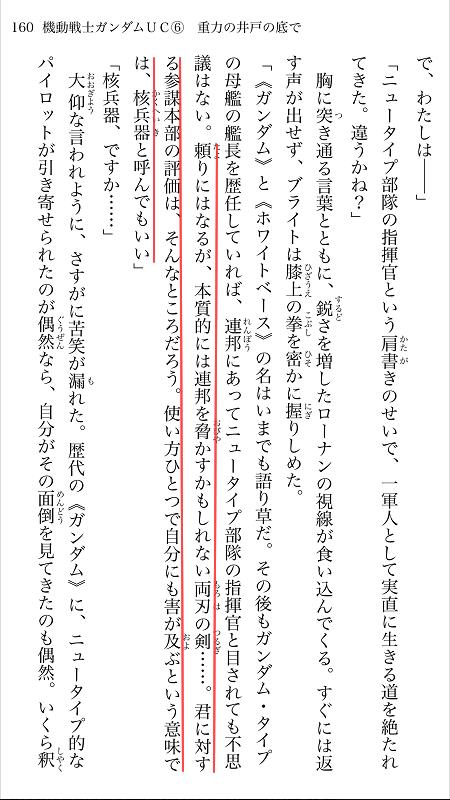 160 機動戦士ガンダムUC⑥ 重力の井戸の底で
で、わたしは――」
「ニュータイプ部隊の指揮官という肩書きのせいで、一軍人として実直に生きる道を絶たれ
てきた。違うかね？」
胸に突き通る言葉とともに、鋭さを増したローナンの視線が食い込んでくる。すぐには返
す声が出せず、ブライトは膝上の拳を密かに握りしめた。
「《ガンダム》と《ホワイトベース》の名はいまでも語り草だ。その後もガンダム・タイプ
の母艦の艦長を歴任していれば、連邦にあってニュータイプ部隊の指揮官と目されても不思
議はない。頼りにはなるが、本質的には連邦を脅かすかもしれない両刃の剣……。君に対す
る参謀本部の評価は、そんなところだろう。使い方ひとつで自分にも害が及ぶという意味で
は、核兵器と呼んでもいい」
「核兵器、ですか……」
大仰な言われように、さすがに苦笑が漏れた。歴代の《ガンダム》に、ニュータイプ的な
パイロットが引き寄せられたのが偶然なら、自分がその面倒を見てきたのも偶然。いくら釈